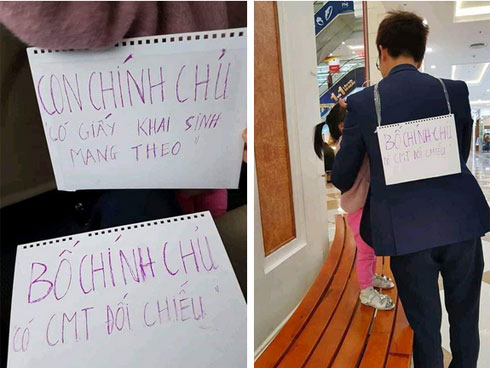 CON CHÍNH CHỦ
CÓ GIẤY KHAI SINH
MANG THEO
BỐ CHÍNH CHỦ
CÓ CMT ĐỐI CHIẾU
BỐ CHÍNH CHỦ
CMT ĐỐI CHIẾU